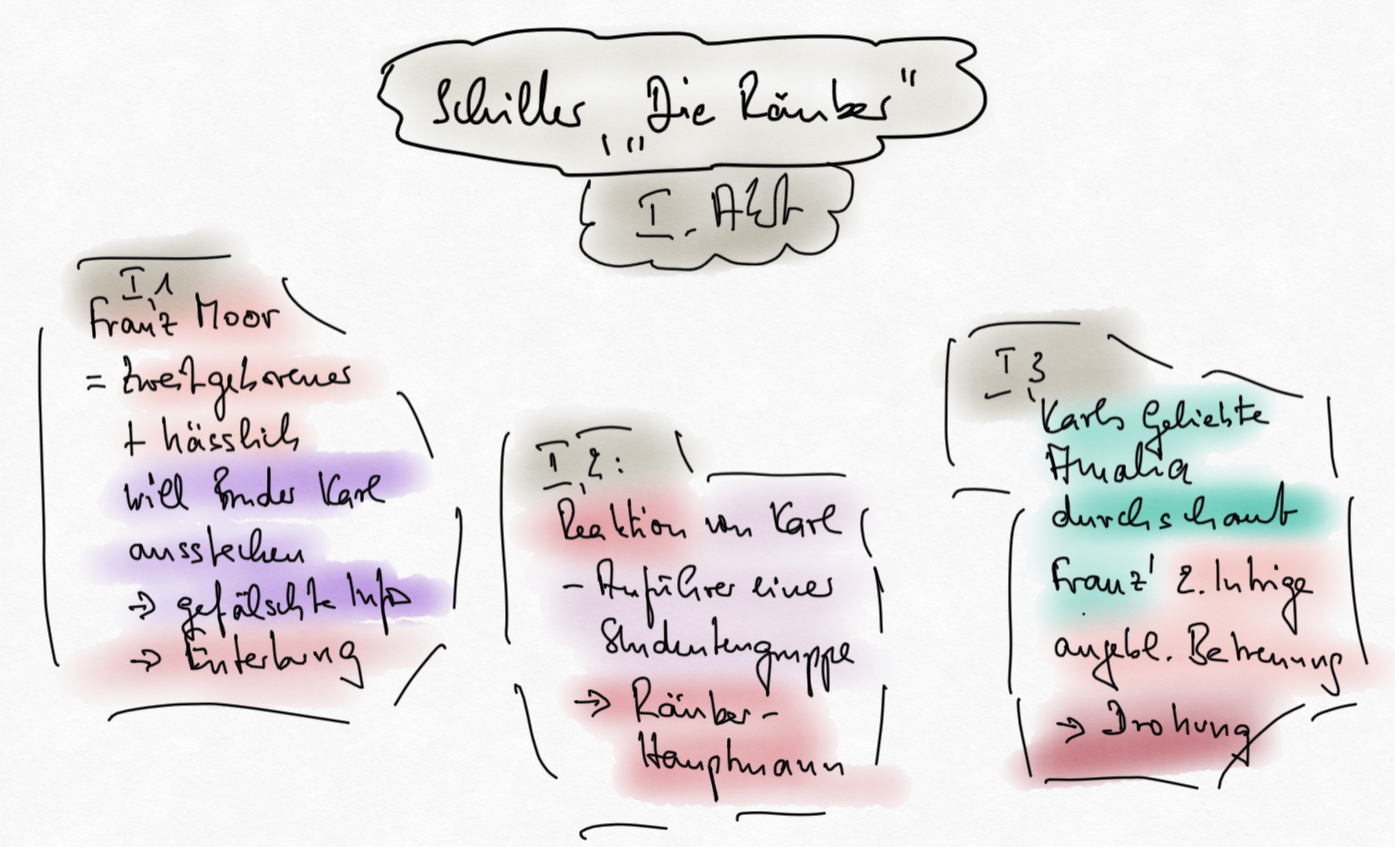 Schiller, „Die Räuber"
I. Akt
I,1
Franz Moor
= Zweitgeborener
+ hässlich
will Bruder Karl
ausstechen
→ gefälschte Info
→ Enterbung
I,2:
Reaktion von Karl
- Anführer einer
Studentengruppe
→ Räuber-
Hauptmann
I,3
Karls Geliebte
Amalia
durchschaut
Franz' 2. Intrige
angebl. Betreuung
→ Drohung